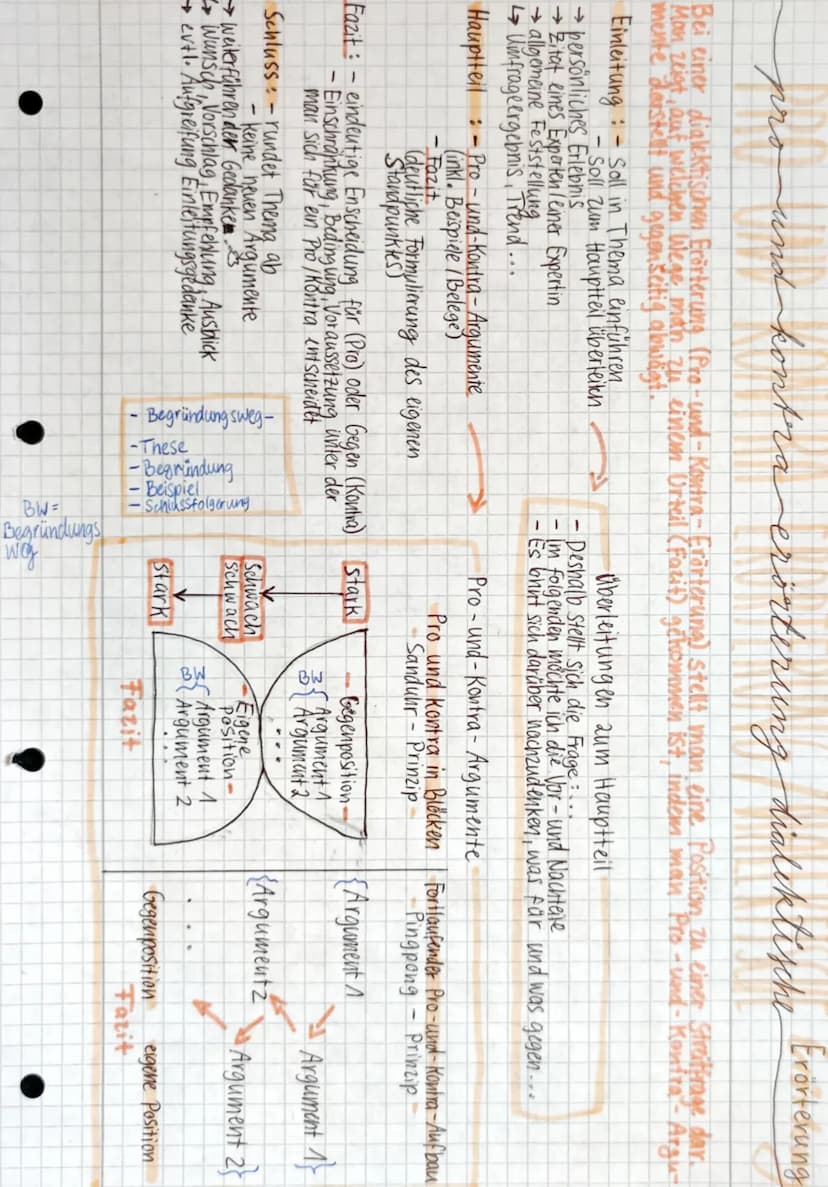 pro-und-kontra-erörterung/dialektische
Erörterung
Bei einer dialektischen Erörterung (Pro-und-Kontra-Erörterung) stellt man eine Position zu einer Streitfrage dar.
Man zeigt, auf welchen Wege man zu einem Urteil (Fazit) gekommen ist, indem man Pro-und-Kontra-Argu-
mente darstellt und gegenseitig abwägt.
Einleitung: - Soll in Thema einführen
- Soll zum Hauptteil überleiten
→ persönliches Erlebnis
→ Zitat eines Experten/einer Expertin
→ allgemeine Feststellung
↳ Umfrageergebnis, Trend...
Überleitungen zum Hauptteil
- Deshalb stellt sich die Frage:...
- Im folgenden möchte ich die Vor- und Nachteile
- Es lohnt sich darüber nachzudenken, was für und was gegen...
Hauptteil: - Pro-und-Kontra-Argumente
(inkl. Beispiele/Belege)
- Fazit
(deutliche Formulierung des eigenen
Standpunktes)
Fazit: - eindeutige Enscheidung für (Pro) oder Gegen (Kontra)
- Einschränkung, Bedingung, Voraussetzung unter der
man sich für ein Pro/Kontra entscheidet
Schluss: - rundet Thema ab
- keine neuen Argumente
→ weiterführen des Gedankes
↳ Wunsch, Vorschlag, Empfehlung, Ausblick
→ evtl. Aufgreifung Einleitungsgedanke
- Begründungsweg-
- These
- Begründung
- Beispiel
- Schlussfolgerung
BW =
Begründungs
weg
Pro-und-Kontra-Argumente
Pro und Kontra in Blöcken
- Sanduhr-Prinzip-
stark
schwach
schwach
stark
- Gegenposition-
BW { Argument 1
Argument 2
...
- Eigene
Position-
BW { Argument 1
Argument 2
...
Fazit
Fortlaufender Pro-und-Kontra-Aufbau
- Pingpong-Prinzip-
{Argument 1
Argument 1}
{Argument 2
Argument 2}
...
Gegenposition eigene Position
Fazit